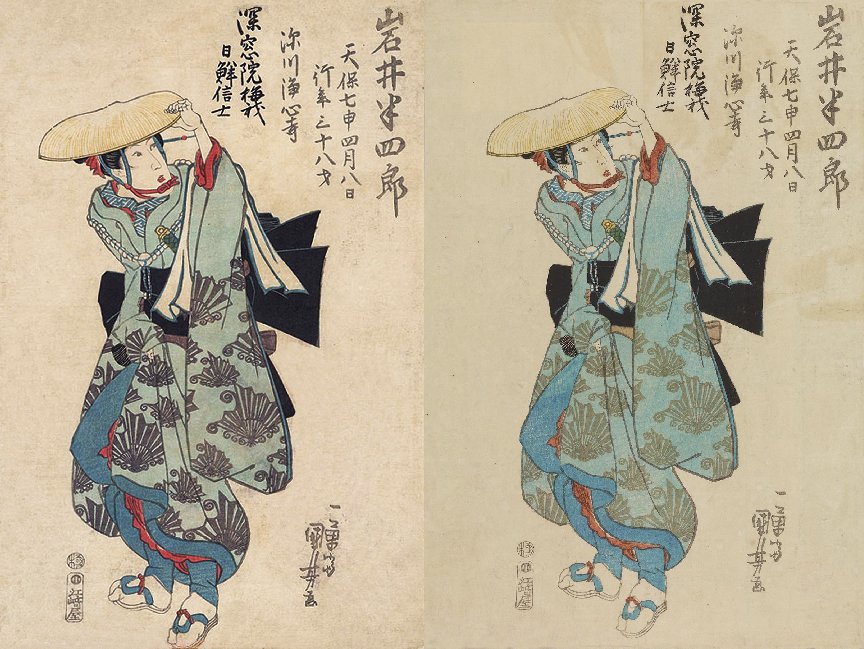 岩井半四郎
天保七申四月八日
行年三十八才
深川浄心寺
深窓院梅我
日鮮信士
一勇斎
國芳画
極
江崎屋
岩井半四郎
天保七申四月八日
行年三十八才
深川浄心寺
深窓院梅我
日鮮信士
一勇斎
國芳画
極
江崎屋